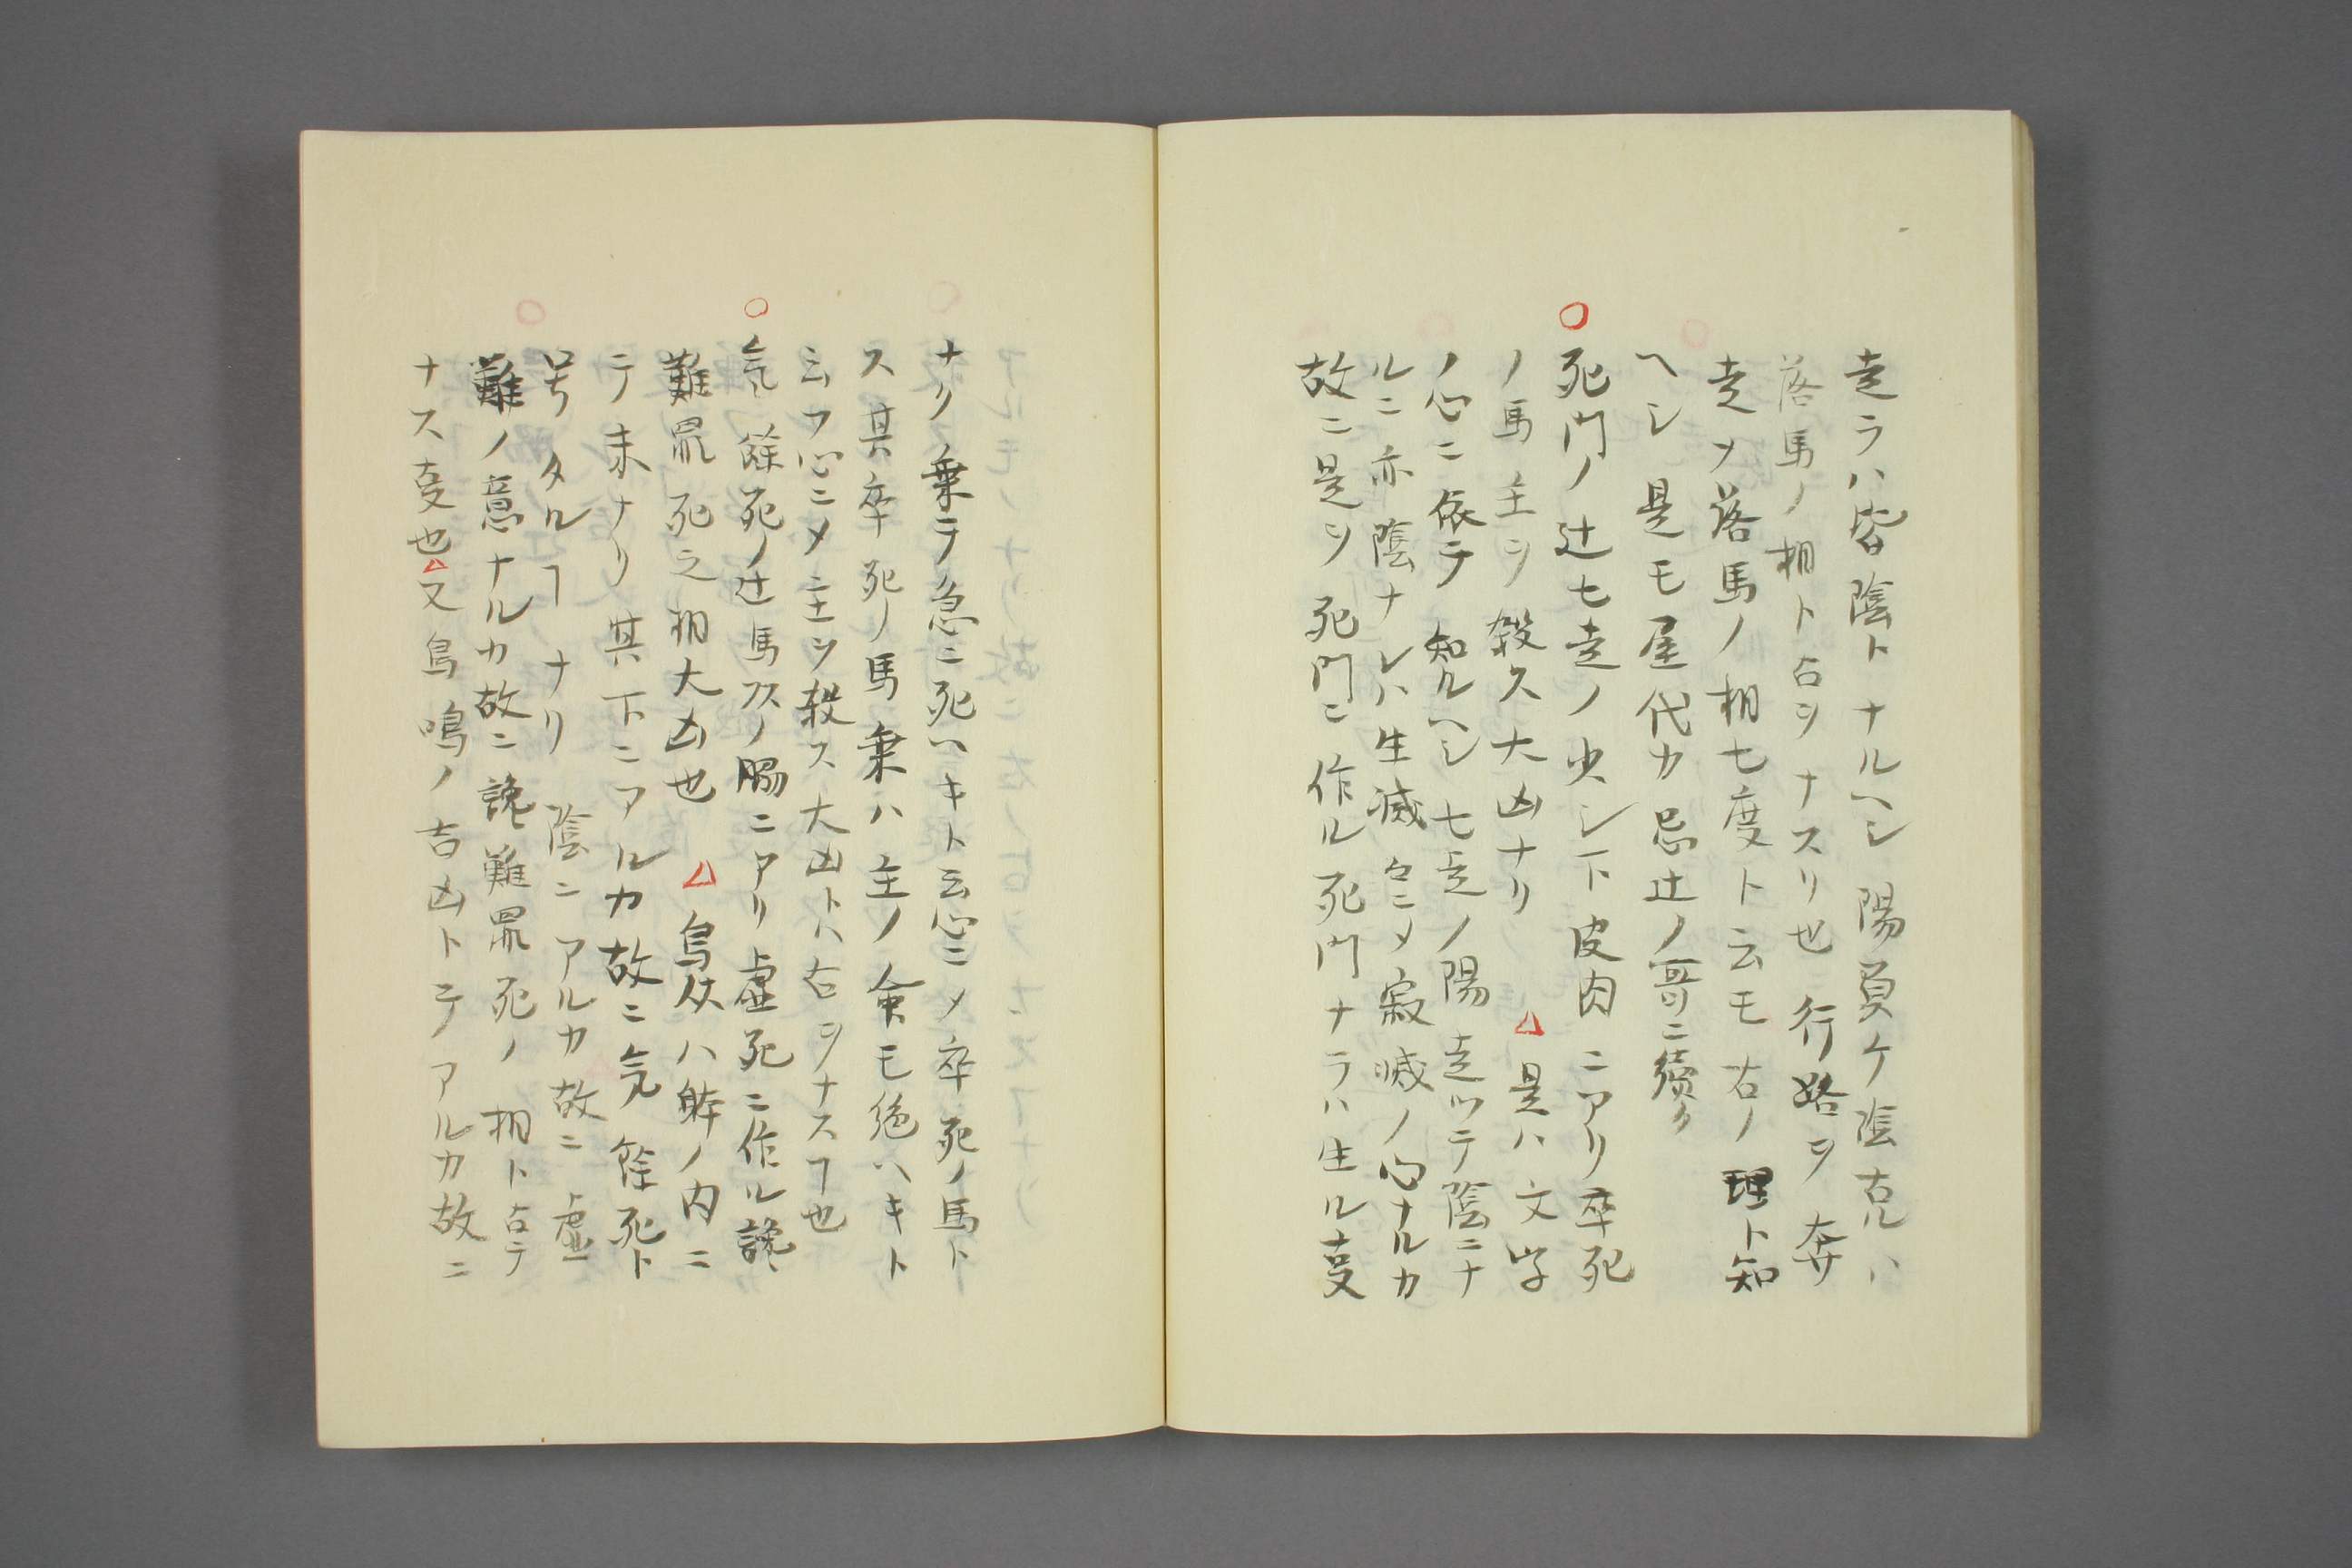 走ラハ皆陰トナルヘシ陽負ケ陰克ルハ
落馬ノ相ト占ヲナスリ也行路ヲ奔
走ヲ落馬ノ相七度ト云モ右ノ理ト知
ヘシ是モ屋代カ忌辻ノ哥ニ續ク
○死門ノ辻七走ノ少シ下皮肉ニアリ卒死
ノ馬主ヲ殺ス大凶ナリ△是ハ文字
ノ心ニ依テ知ルヘシ七走ノ陽走ツテ陰ニナ
ルニ亦陰ナレハ生滅々ニメ寂滅ノ心ナルカ
故ニ是ヲ死門ニ作ル死門ナラハ生ル叓
ナリ乗テ急ニ死ヘキト云心ニメ卒死ノ馬ト
ス其卒死ノ馬乗ハ主ノ命モ絶ヘキト
云フ心ニメ主ヲ殺ス大凶トハ占ヲナスヿ也
○気餘死ノ辻馬スノ腸ニアリ虚死ニ作ル讒
難罪死之相大凶也△烏伏ハ解ノ内ニ
テ未ナリ其下ニアルカ故ニ気餘死ト
号タルヿナリ陰ニアルカ故ニ虚
難ノ意ナルカ故ニ讒難罪死ノ相ト占テ
ナス叓也△又烏鳴ノ吉凶トテアルカ故ニ